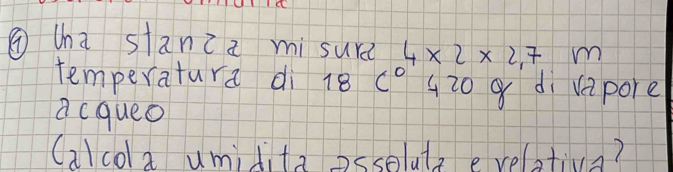 ① Una stanza misura 4 x 2 x 2,7 m
temperatura di 18 C° 420 g di vapore
acqueo
Calcola umidità assoluta e relativa?